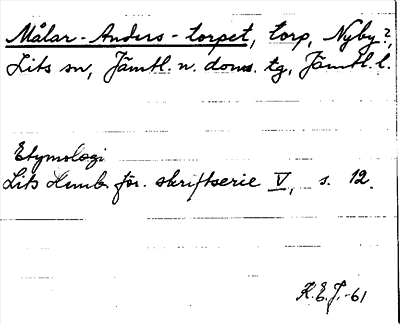 Målar-Anders-torpet, torp, Nyby?,
Lits sn, Jämtl. n. doms. tg, Jämtl. l.
Etymologi
Lits Hemb. för. skriftserie V, s. 12.
K.E.T.-61